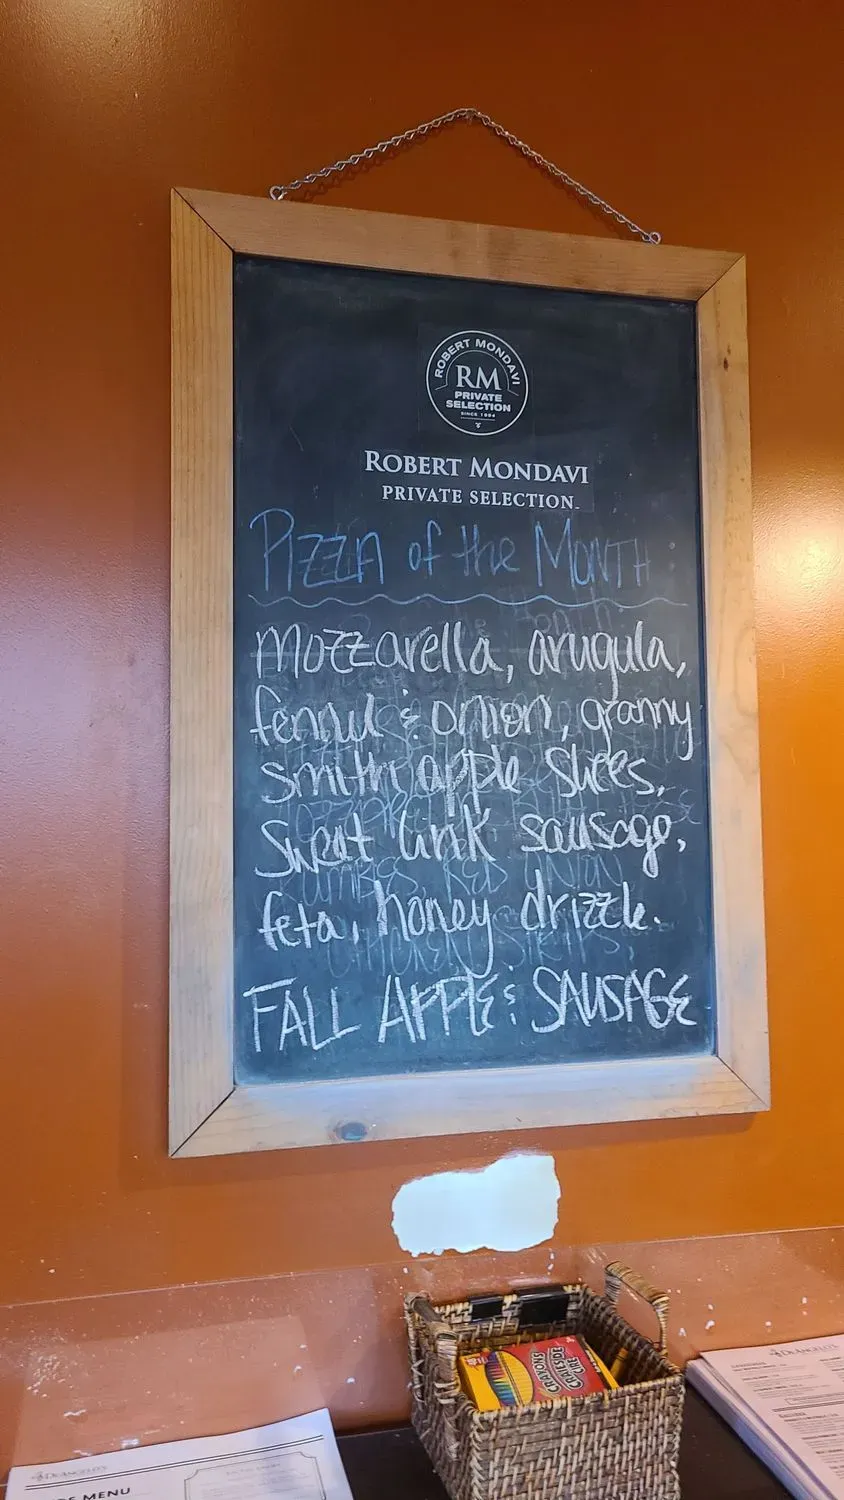 ROBERT MONDAVI
RM
PRIVATE
SELECTION
SINCE 1994
ROBERT MONDAVI
PRIVATE SELECTION
PIZZA of the MONTH:
mozzarella, arugula,
fennul & onion, granny
smith apple slices,
Sweat link sausage,
feta, honey drizzle.
FALL APPLE & SAUSAGE
CRAYONS
DEANGELO'S
DEANGELO'S
MENU